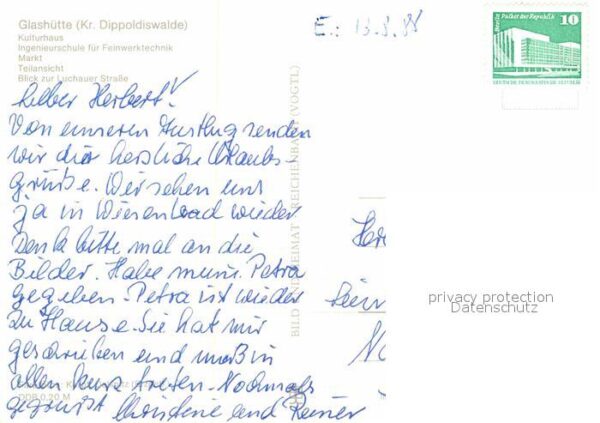 Glashütte (Kr. Dippoldiswalde)
Kulturhaus
Ingenieurschule für Feinwerktechnik
Markt
Teilansicht
Blick zur Luchauer Straße
E.: 13.8.88
Berlin, Palast der Republik
10
DEUTSCHE DEMOKRATISCHE REPUBLIK
Lieber Herbert!
Von unseren Ausflug senden
wir dir herzliche Urlaubs-
grüße. Wir sehen uns
ja in Wiesenbad wieder
Denk bitte mal an die
Bilder. Habe meine Petra
gegeben. Petra ist wieder
zu Hause. Sie hat mir
geschrieben und muß in
allen kurz treten. Nochmals
gegrüßt Christine und Rainer
DDR 0,20 M
BILD UND HEIMAT REICHENBACH (VOGTL)
Her
privacy protection
Datenschutz